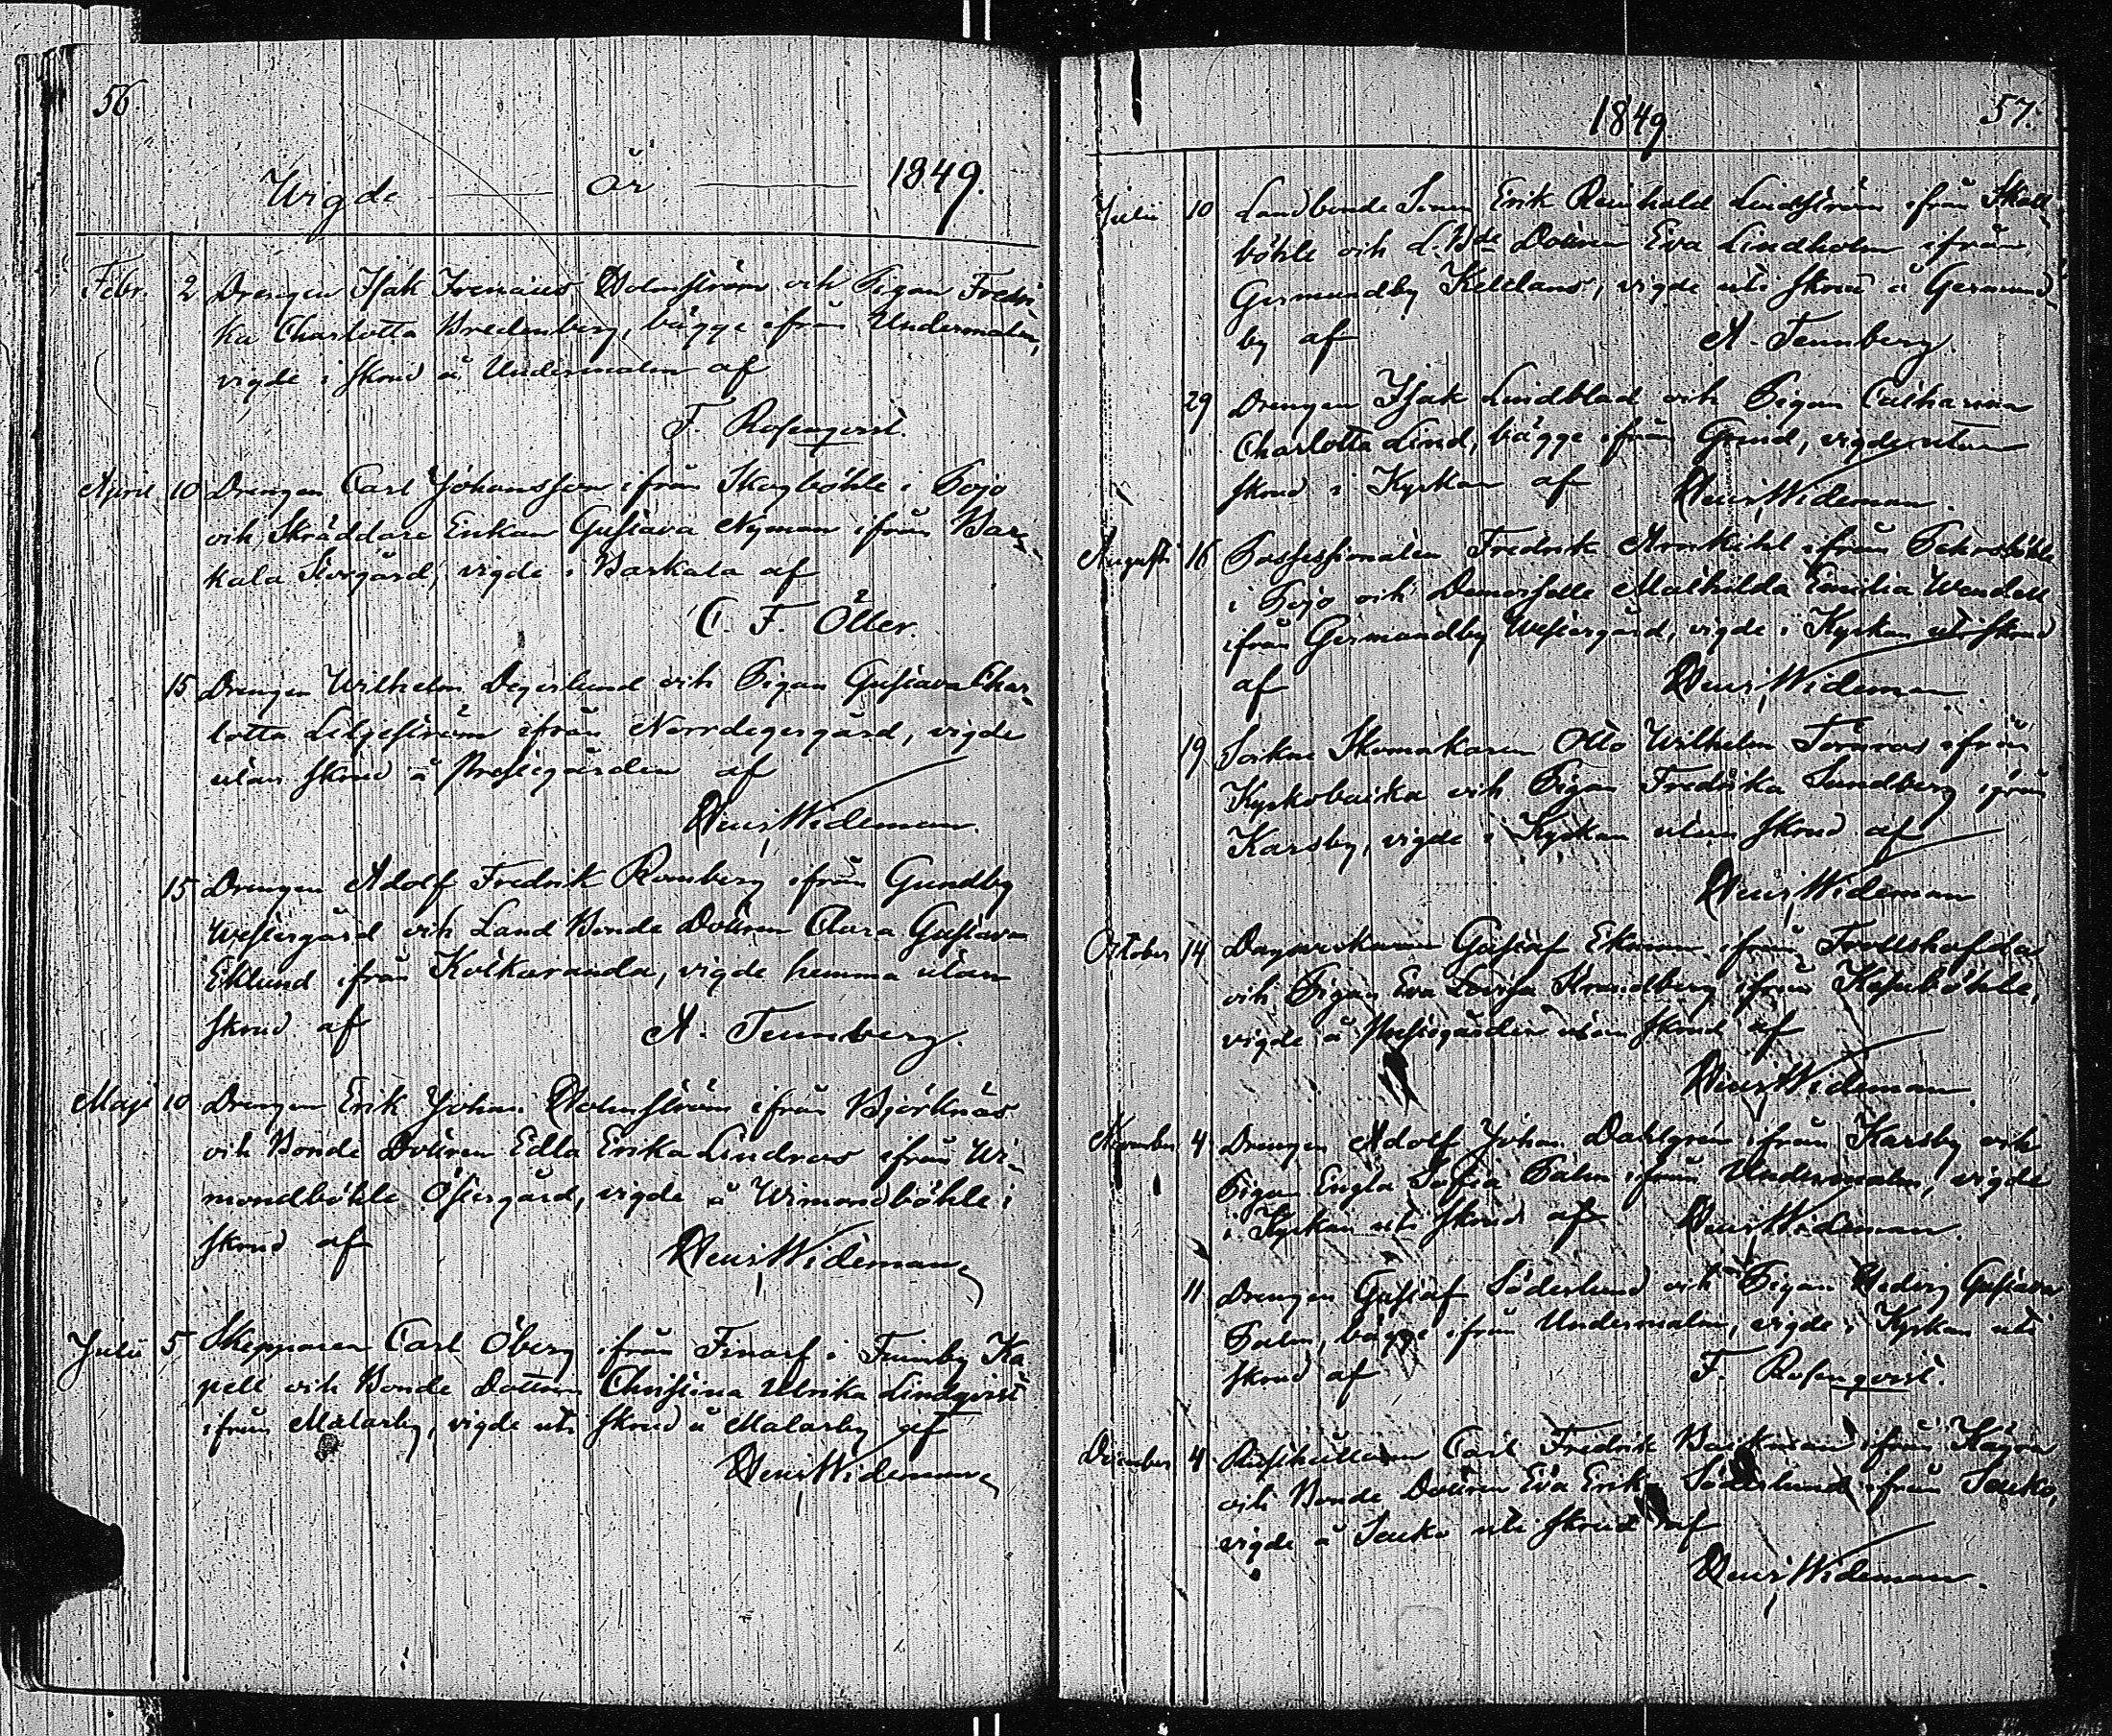 56
Wigde år 1849.
Febr. 2 Drengen Isak Irenaeus Holmström och Pigan Fredri-
ka Charlotta Bredenberg, bägge ifrån Undermalm,
vigde i skrud å Undermalm af
F. Rosenqvist.
April 10 Drengen Carl Johansson ifrån Skogböhle i Pojo
och Skräddare Enkan Gustava Nyman ifrån Bar-
kala Storgård, vigde i Barkala af
C. F. Öller.
15 Drengen Wilhelm Degerlund och Pigan Gustava Char-
lotta Liljeström ifrån Norrdegergård, vigde
utan skrud å Prestegården af
Henr. Wideman.
15 Drengen Adolf Fredrik Romberg ifrån Gundby
Westergård och Land Bonde Dottren Clara Gustava
Eklund ifrån Kolkaranda, vigde hemma utan
skrud af A. Tennberg.
Maji 10 Drengen Erik Johan Holmström ifrån Björknäs
och Bonde Dottren Edla Erika Lindroos ifrån Wi-
mondböhle Östergård, vigde å Wimondböhle i
skrud af Henr. Wideman
Julii 5 Skepparen Carl Öberg ifrån Finarf i Finnby Ka
pell och Bonde Dottren Christina Ulrika Lindqvist
ifrån Malarby, vigde uti skrud å Malarby af
Henr. Wideman
1849 57.
Julii 10 Landbonde Sonen Erik Reinhold Lindström ifrån Skall-
böhle och L. Bde Dottren Eva Lindholm ifrån
Germundby Kelklans, vigde uti skrud å Germund-
by af A. Tennberg.
29 Drengen Isak Lindblad och Pigan Catharina
Charlotta Lind, bägge ifrån Grind, vigde utan
skrud i Kyrkan af Henr. Wideman.
Augusti 16 Possessionaten Fredrik Arnkihl ifrån
i Pojo och Demoiselle Mathilda Emilia Wendell
ifrån Germundby Westergård, vigde i Kyrkan uti skrud
af Henr. Wideman.
19 Sockne Skomakaren Otto Wilhelm Törnroos ifrån
Kyrkobacka och Pigan Fredrika Sundberg ifrån
Karsby, vigde i Kyrkan utan skrud af
Henr. Wideman
October 14 Dagsverkaren Gustaf Ekman ifrån Trollshofda
och Pigan Eva Lovisa Strandberg ifrån
vigde å Prestegården utan skrud af
Henr. Wideman.
November 4 Drengen Adolf Johan Dahlgren ifrån Karsby och
Pigan Engla Sofia Palm ifrån Undermalm, vigde
i Kyrkan uti skrud af Henr. Wideman.
11 Drengen Gustaf Söderlund och Pigan Hedvig Gustava
Palm, bägge ifrån Undermalm, vigde i Kyrkan uti
skrud af F. Rosenqvist.
December 4 Rusthållaren Carl Fredrik Backman ifrån Kågra
och Bonde Dottren Eva Erik Söderlund ifrån Sauko,
vigde å Sauko uti skrud af
Henr. Wideman.